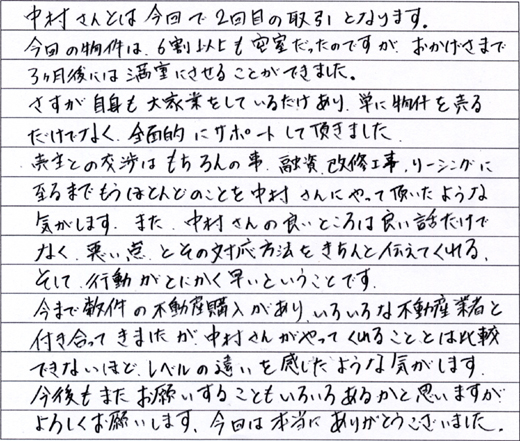 中村さんとは今回で2回目の取引となります。
今回の物件は、6割以上も空室だったのですが、おかげさまで
3ヶ月後には満室にさせることができました。
さすが自身も大家業をしているだけあり、単に物件を売る
だけでなく、全面的にサポートして頂きました。
売主との交渉はもちろんの事、融資、改修工事、リーシングに
至るまでもうほとんどのことを中村さんにやって頂いたような
気がします。また、中村さんの良いところは良い話だけで
なく、悪い点とその対応方法をきちんと伝えてくれる、
そして、行動がとにかく早いということです。
今まで数件の不動産購入があり、いろいろな不動産業者と
付き合ってきましたが、中村さんがやってくれることとは比較
できないほど、レベルの違いを感じたような気がします。
今後もまたお願いすることもいろいろあるかと思いますが
よろしくお願いします、今回は本当にありがとうございました。